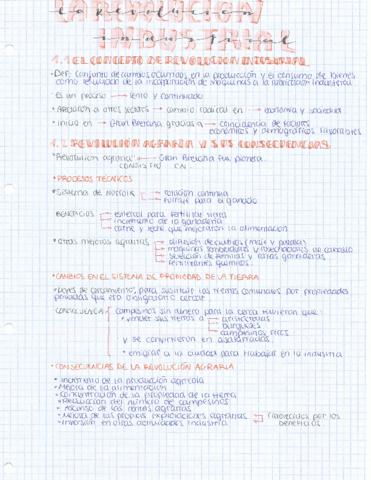 LA REVOLUCIÓN
la revolución
INDUSTRIAL
industrial
1.1 EL CONCEPTO DE REVOLUCIÓN INDUSTRIAL
• Def: conjunto de cambios ocurridos en la producción y el consumo de bienes
como resultado de la incorporación de máquinas a la fabricación industrial.
• Es un proceso → lento y continuado
• Afectaron a otros sectores → cambio radical en → economía y sociedad
• Inicio en → Gran Bretaña gracias a → coincidencia de factores
económicos y demográficos favorables
1.2 REVOLUCIÓN AGRARIA Y SUS CONSECUENCIAS.
"Revolución agraria" → Gran Bretaña fue pionera.
CONSISTIÓ EN...
• PROCESOS TÉCNICOS
• Sistema de Norfolk → rotación continua
→ forraje para el ganado
BENEFICIOS → estiércol para fertilizar tierra
→ incremento de la ganadería
→ carne y leche que mejoraron la alimentación
• otras mejoras agrarias → difusión de cultivos (maíz y patata)
→ máquinas sembradoras y cosechadoras de caballo
→ selección de semillas y razas ganaderas
→ fertilizantes químicos.
• CAMBIOS EN EL SISTEMA DE PROPIEDAD DE LA TIERRA
• Leyes de cercamiento, para sustituir las tierras comunales por propiedades
privadas que era obligatorio cercar.
CONSECUENCIA campesinos sin dinero para la cerca tuvieron que:
• vender sus tierras a → aristócratas
→ burgueses
→ campesinos ricos
y se convirtieron en asalariados.
• emigrar a la ciudad para trabajar en la industria
• CONSECUENCIAS DE LA REVOLUCIÓN AGRARIA
• Incremento de la producción agrícola
• Mejora de la alimentación
• Concentración de la propiedad de la tierra
• Reducción del número de campesinos
• Ascenso de las rentas agrarias
• Mejora de las propias explotaciones agrarias → favorecidas por los
• Inversión en otras actividades industria beneficios